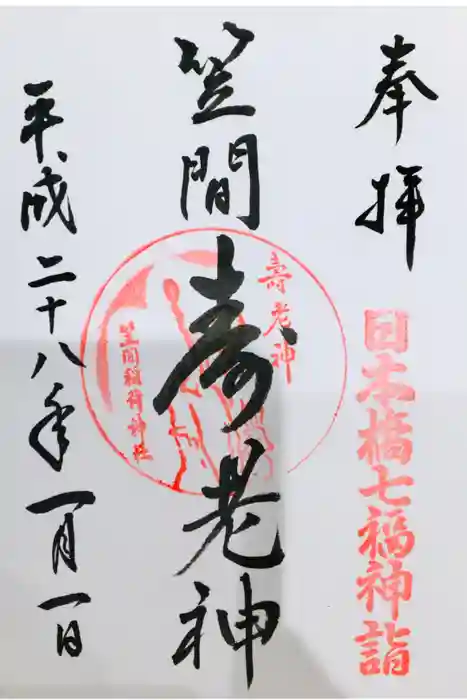 奉拝
日本橋七福神詣
笠間寿老神
壽老神
笠間稲荷神社
平成二十八年一月一日